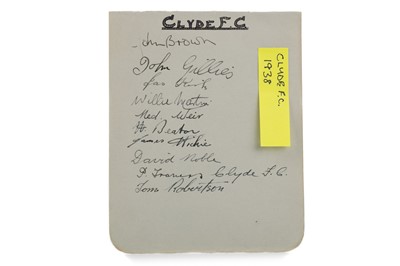 CLYDE F.C
John Brown
John Gillies
Jas Kirk
Willie Martin
Ned Weir
H. Beaton
James Hickie
David Noble
P. Travers Clyde F.C.
Tom Robertson
CLYDE F.C.
1938